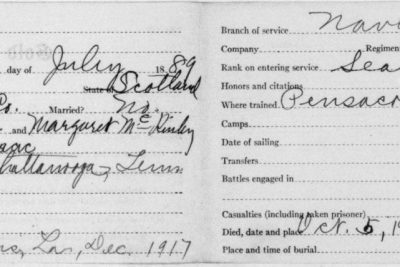 day of July 1889
State of Scotland
Co. Married? No.
and Margaret McKinley
Chattanooga, Tenn
La, Dec. 1917
Branch of service Nav
Company Regimen
Rank on entering service Sea
Honors and citations
Where trained Pensaco
Camps
Date of sailing
Transfers
Battles engaged in
Casualties (including taken prisoner)
Died, date and place Oct. 5, 19
Place and time of burial